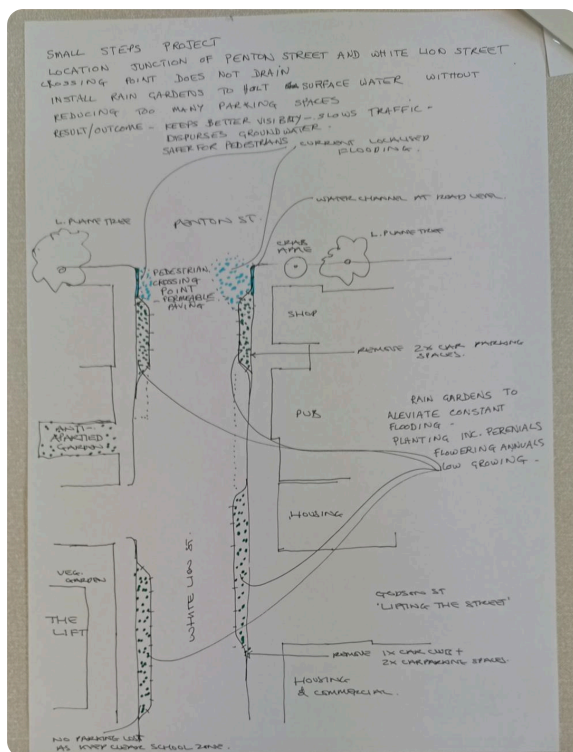 SMALL STEPS PROJECT
LOCATION JUNCTION OF PENTON STREET AND WHITE LION STREET
CROSSING POINT DOES NOT DRAIN
INSTALL RAIN GARDENS TO HOLT SURFACE WATER WITHOUT
REDUCING TOO MANY PARKING SPACES
RESULT/OUTCOME - KEEPS BETTER VISIBILTY - SLOWS TRAFFIC -
DISPURSES GROUNDWATER.
SAFER FOR PEDESTRIANS
CURRENT LOCALISED
FLOODING.
WATER CHANNEL AT ROAD LEVEL
L. PLANE TREE
PENTON ST.
CRAB
APPLE
L. PLANE TREE
PEDESTRIAN
CROSSING
POINT
- PERMEABLE
PAVING
SHOP
REMOVE 2x CAR PARKING
SPACES.
PUB
RAIN GARDENS TO
ALEVIATE CONSTANT
FLOODING -
PLANTING INC. PERENIALS
FLOWERING ANNUALS
LOW GROWING -
ANTI-
APARTIED
GARDEN
HOUSING
WHITE LION ST.
VEG.
GARDEN
THE
LIFT
GODSON ST
'LIFTING THE STREET'
REMOVE 1x CAR CLUB +
2x CARPARKING SPACES.
HOUSING
& COMMERCIAL.
NO PARKING LOST
AS KEEP CLEAR SCHOOL ZONE.